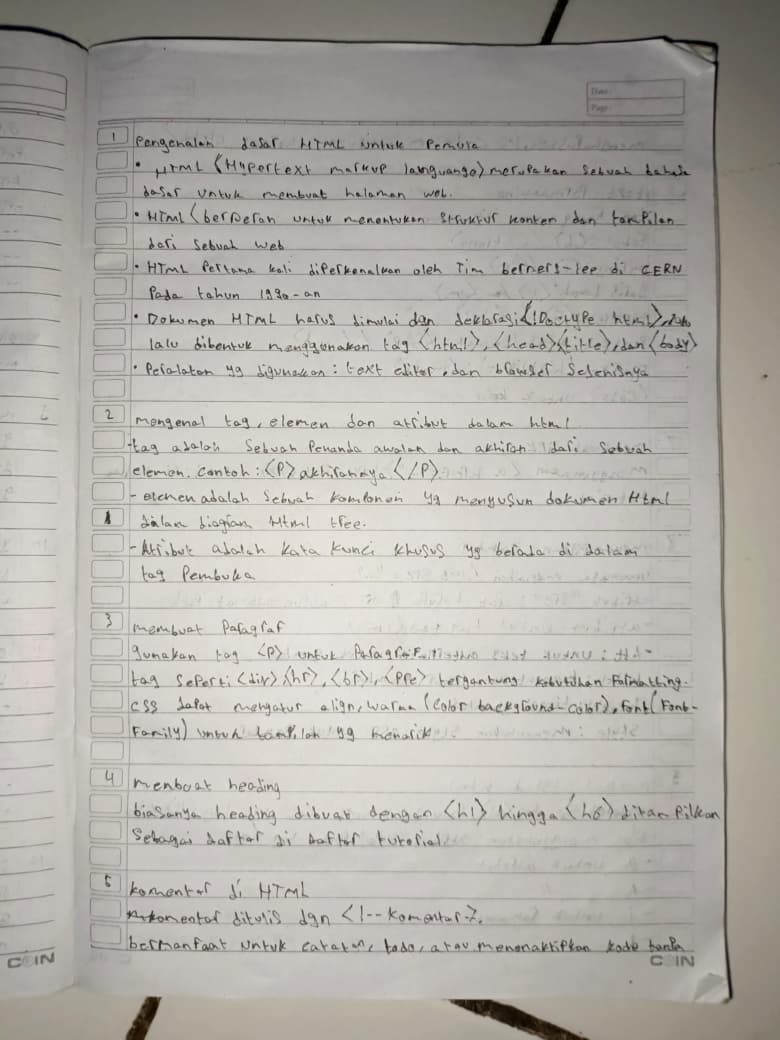 Date
Page
1 Pengenalan dasar HTML untuk Pemula
• HTML (Hypertext markup languange) merupakan sebuah bahasa
dasar untuk membuat halaman web.
• HTML (berperan untuk menentukan struktur konten dan tampilan
dari sebuah web
• HTML Pertama kali diperkenalkan oleh Tim berners-lee di CERN
Pada tahun 1990-an
• Dokumen HTML harus dimulai dgn deklarasi <!Doctype html>,
lalu dibentuk menggunakan tag <html>, <head> <title>, dan <body>
• Peralatan yg digunakan : text editor, dan browser sejenisnya
2 mengenal tag, elemen dan atribut dalam html
-tag adalah sebuah Penanda awalan dan akhiran dari sebuah
elemen. contoh : <P> akhirannya </P>
- elemen adalah sebuah komponen yg menyusun dokumen Html
dalam diagram Html tree.
- Atribut adalah kata kunci khusus yg berada di dalam
tag Pembuka
3 membuat Paragraf
gunakan tag <P> untuk Paragraf.
tag seperti <div> <hr>, <br>, <Pre> tergantung kebutuhan Formatting.
CSS dapat mengatur align, warna (color background-color), font (Font-
Family) untuk tampilan yg menarik
4 membuat heading
biasanya heading dibuat dengan <h1> hingga <h6> ditampilkan
sebagai daftar di daftar tutorial
5 komentar di HTML
komentar ditulis dgn <!-- komentar->.
bermanfaat untuk catatan, todo, atau menonaktifkan kode tanpa
COIN
COIN